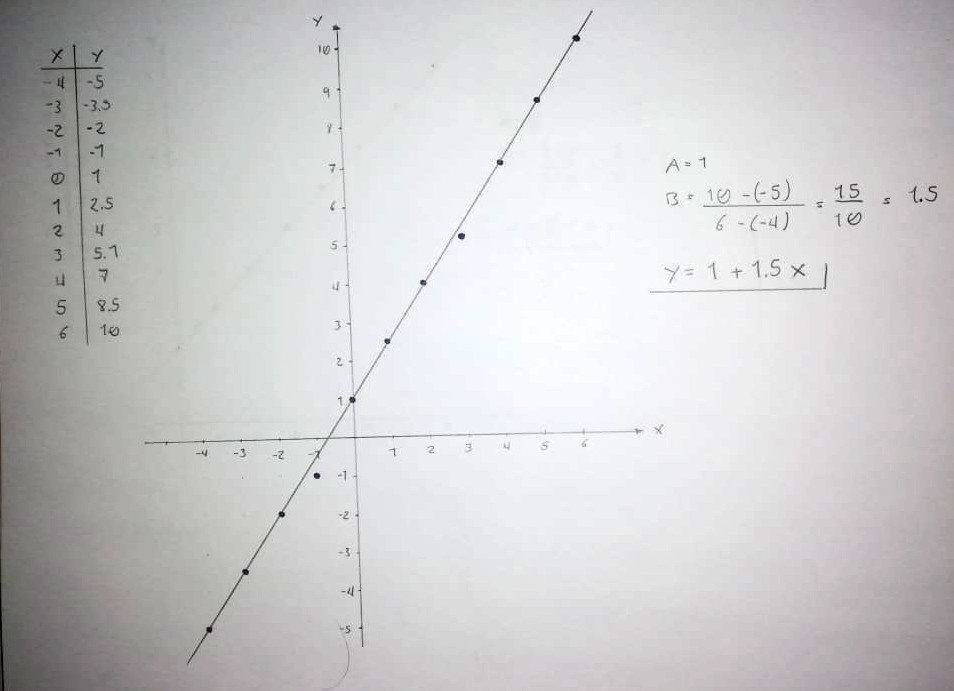 X Y
-4 -5
-3 -3.5
-2 -2
-1 -1
0 1
1 2.5
2 4
3 5.1
4 7
5 8.5
6 10
Y
10
9
8
7
6
5
4
3
2
1
-4 -3 -2 -1 1 2 3 4 5 6 X
-1
-2
-3
-4
-5
A = 1
B = 10 -(-5) / 6 -(-4) = 15 / 10 = 1.5
Y = 1 + 1.5 X